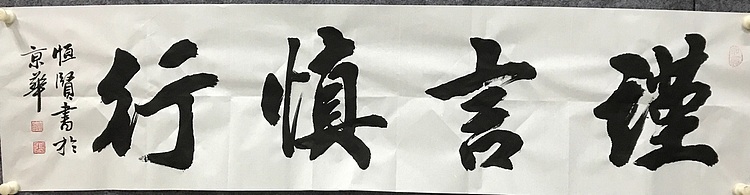 瑾言慎行
恒賢書於
京華